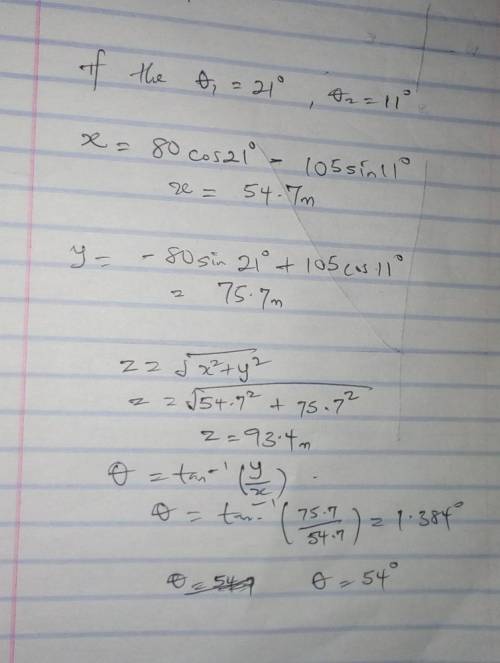 If the θ₁ = 21° , θ₂ = 11°
x = 80 cos21° - 105 sin11°
x = 54.7m
y = -80 sin 21° + 105 cos 11°
= 75.7m
z = √x²+y²
z = √54.7² + 75.7²
z = 93.4m
θ = tan⁻¹ (y/x) .
θ = tan⁻¹ (75.7/54.7) = 1.384°
θ = 54° θ = 54°